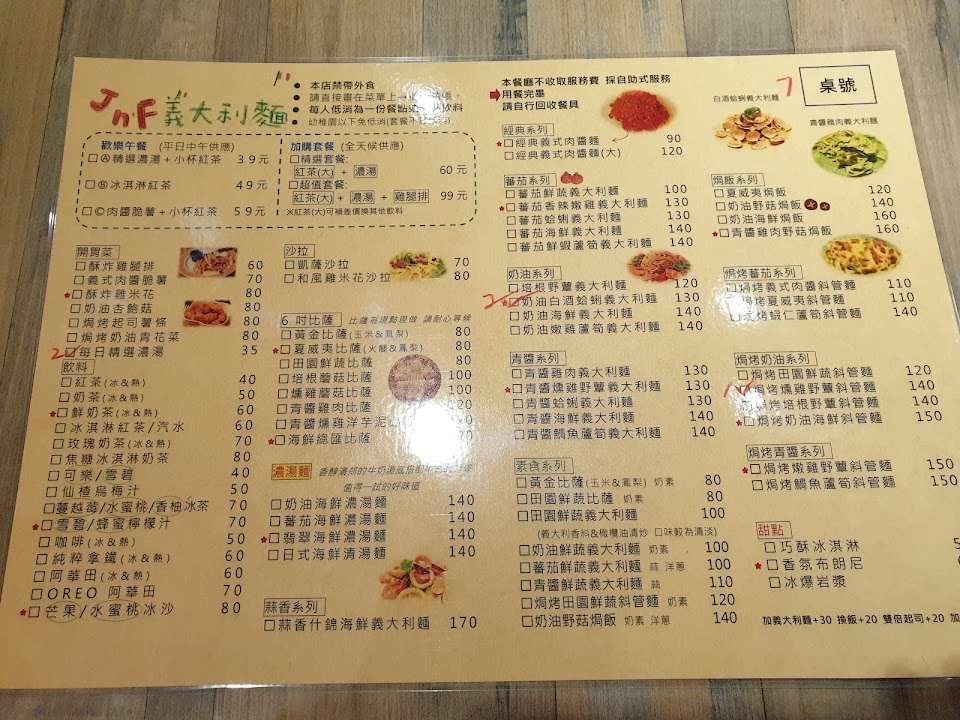 JnF義大利麵
本店禁帶外食
請直接畫在菜單上
每人低消為一份餐點
飲料
幼稚園以下免低消(套餐
本餐廳不收取服務費 採自助式服務
用餐完畢
請自行回收餐具
桌號
7
白酒蛤蜊義大利麵
青醬雞肉義大利麵
歡樂午餐 (平日中午供應)
□Ⓐ精選濃湯+小杯紅茶 39元
□Ⓑ冰淇淋紅茶 49元
□Ⓒ肉醬脆薯+小杯紅茶 59元
加購套餐 (全天候供應)
□精選套餐:
紅茶(大) + 濃湯 60元
□超值套餐:
紅茶(大) + 濃湯 + 雞腿排 99元
※紅茶(大)可補差價換其他飲料
開胃菜
□酥炸雞腿排 60
□義式肉醬脆薯 70
★□酥炸雞米花 80
□奶油杏鮑菇 80
□焗烤起司薯條 80
★□焗烤奶油青花菜 80
2 □每日精選濃湯 35
飲料
□紅茶(冰&熱) 40
□奶茶(冰&熱) 50
★□鮮奶茶(冰&熱) 60
□冰淇淋紅茶/汽水 60
□玫瑰奶茶(冰&熱) 70
□焦糖冰淇淋奶茶 80
□可樂/雪碧 40
□仙楂烏梅汁 50
□蔓越莓/水蜜桃/香柚冰茶 70
★□雪碧/蜂蜜檸檬汁 70
□咖啡(冰&熱) 50
□純粹拿鐵(冰&熱) 60
□阿華田(冰&熱) 60
□OREO 阿華田 70
★□芒果/水蜜桃冰沙 80
沙拉
□凱薩沙拉 70
□和風雞米花沙拉 80
6 吋比薩 比薩為現點現做 請耐心等候
□黃金比薩(玉米&鳳梨) 80
★□夏威夷比薩(火腿&鳳梨) 80
□田園鮮蔬比薩 80
□培根蘑菇比薩 100
□燻雞蘑菇比薩 100
□青醬雞肉比薩 120
□青醬燻雞洋芋泥
★□海鮮總匯比薩
濃湯麵
值得一試的好味道
□奶油海鮮濃湯麵 140
□蕃茄海鮮濃湯麵 140
★□翡翠海鮮濃湯麵 140
□日式海鮮清湯麵 140
蒜香系列
□蒜香什錦海鮮義大利麵 170
經典系列
★□經典義式肉醬麵 90
□經典義式肉醬麵(大) 120
蕃茄系列
□蕃茄鮮蔬義大利麵 100
★□蕃茄香辣嫩雞義大利麵 130
□蕃茄蛤蜊義大利麵 130
□蕃茄海鮮義大利麵 140
□蕃茄鮮蝦蘆筍義大利麵 140
奶油系列
□培根野蕈義大利麵 120
★□奶油白酒蛤蜊義大利麵 130
□奶油海鮮義大利麵 140
□奶油嫩雞蘆筍義大利麵 140
青醬系列
□青醬雞肉義大利麵 130
★□青醬燻雞野蕈義大利麵 130
□青醬蛤蜊義大利麵 130
□青醬海鮮義大利麵 140
□青醬鯛魚蘆筍義大利麵 140
素食系列
□黃金比薩(玉米&鳳梨) 奶素 80
□田園鮮蔬比薩 奶素 80
□田園鮮蔬義大利麵 100
(義大利香料&橄欖油清炒 口味較為清淡)
□奶油鮮蔬義大利麵 奶素 100
□蕃茄鮮蔬義大利麵 蒜 洋蔥 100
□青醬鮮蔬義大利麵 蒜 110
□焗烤田園鮮蔬斜管麵 奶素 120
□奶油野菇焗飯 奶素 洋蔥 140
焗飯系列
□夏威夷焗飯 120
□奶油野菇焗飯 140
□奶油海鮮焗飯 160
★□青醬雞肉野菇焗飯 160
焗烤蕃茄系列
□焗烤義式肉醬斜管麵 110
□焗烤夏威夷斜管麵 110
□焗烤蝦仁蘆筍斜管麵 140
焗烤奶油系列
□焗烤田園鮮蔬斜管麵 120
焗烤燻雞野蕈斜管麵 140
□焗烤培根野蕈斜管麵 140
★□焗烤奶油海鮮斜管麵 150
焗烤青醬系列
★□焗烤嫩雞野蕈斜管麵 150
□焗烤鯛魚蘆筍斜管麵 150
甜點
□巧酥冰淇淋
★□香氛布朗尼
□冰爆岩漿
加義大利麵+30 換飯+20 雙倍起司+20